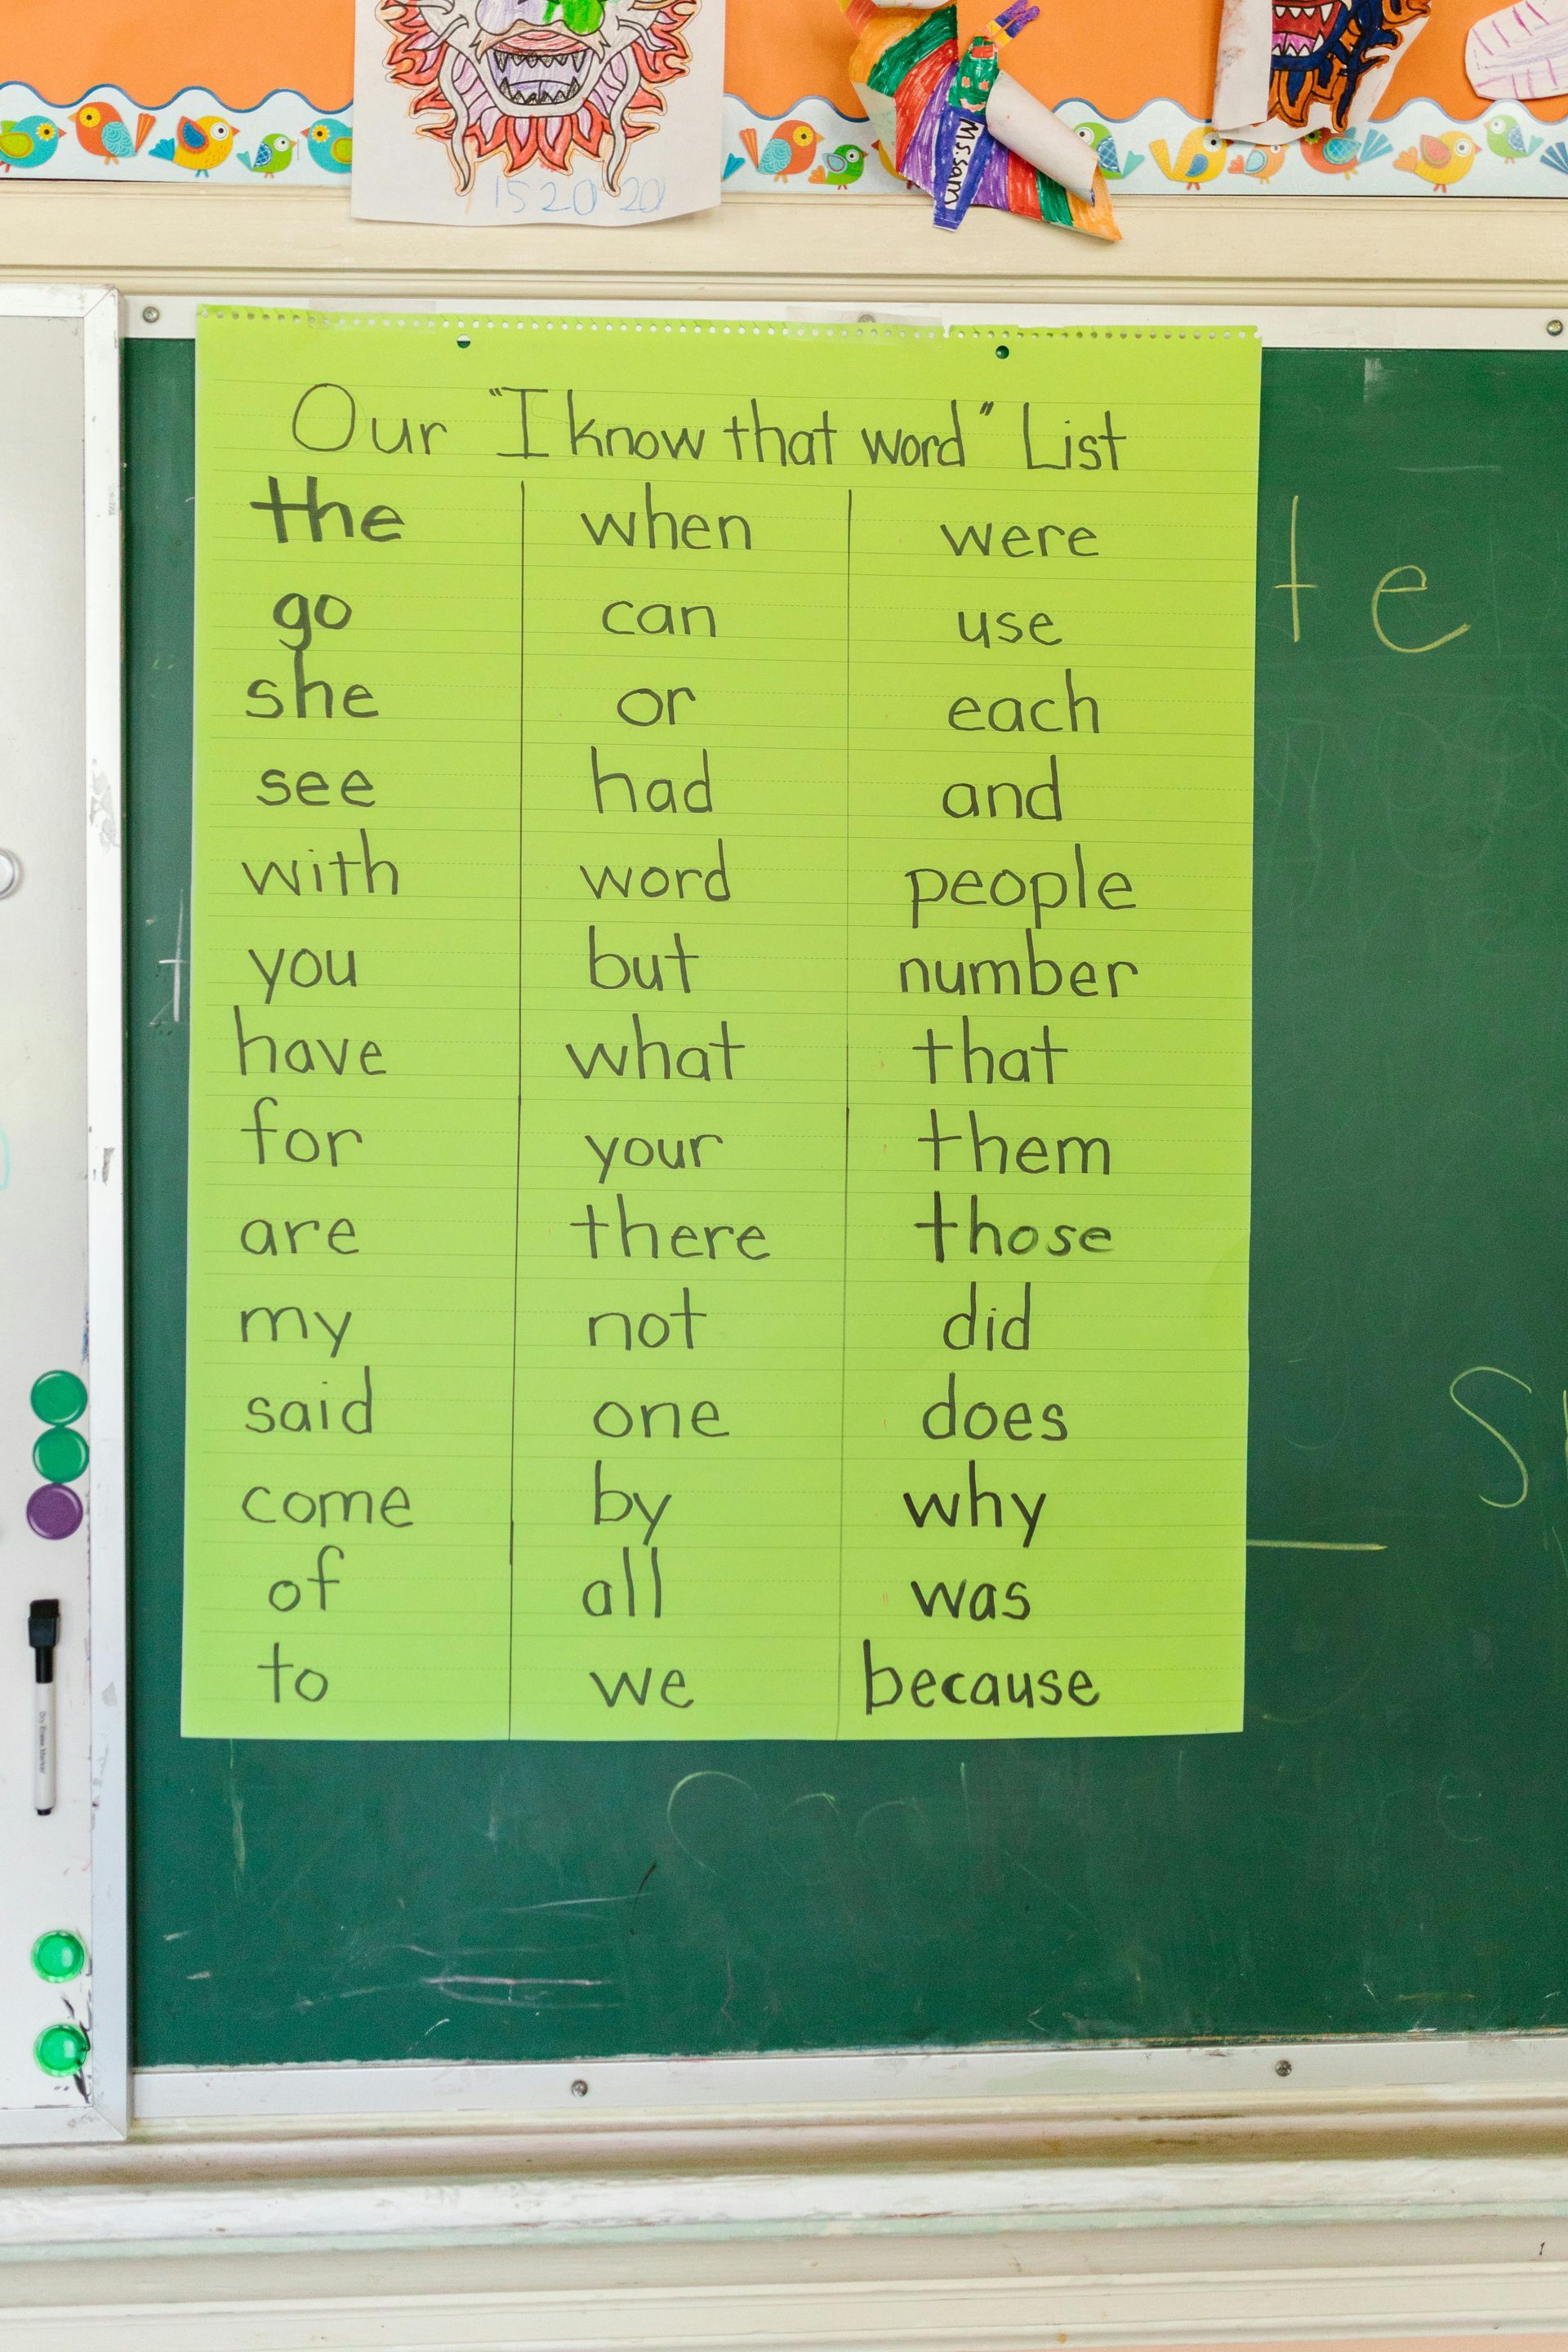 1520 20
Ms. Sam
Our "I know that word" List
the when were
go can use
she or each
see had and
with word people
you but number
have what that
for your them
are there those
my not did
said one does
come by why
of all was
to we because
te
Dry Erase Marker